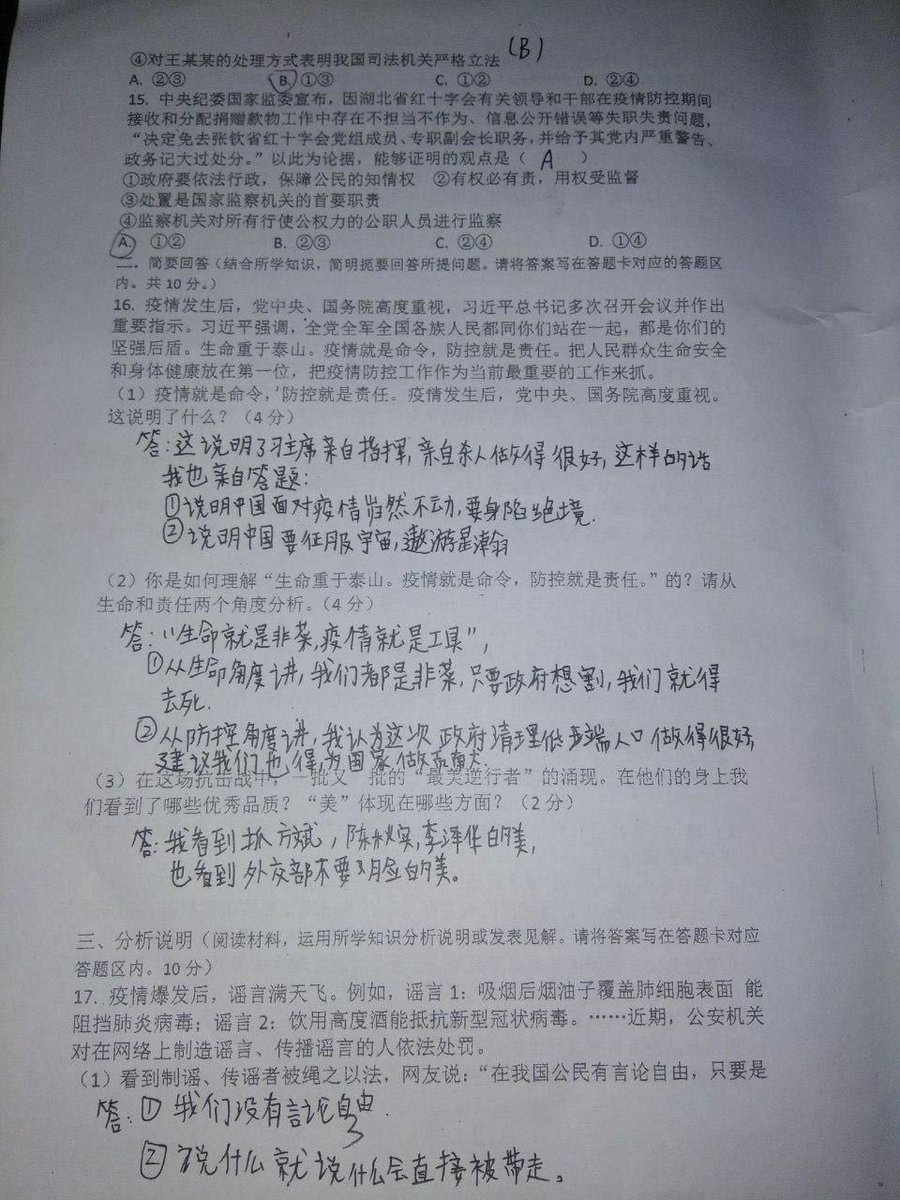 ④对王某某的处理方式表明我国司法机关严格立法 (B)
A. ②③ B. ①③ C. ①② D. ②④
15. 中央纪委国家监委宣布，因湖北省红十字会有关领导和干部在疫情防控期间
接收和分配捐赠款物工作中存在不担当不作为、信息公开错误等失职失责问题，
“决定免去张钦省红十字会党组成员、专职副会长职务，并给予其党内严重警告、
政务记大过处分。”以此为论据，能够证明的观点是（ A ）
①政府要依法行政，保障公民的知情权 ②有权必有责，用权受监督
③处置是国家监察机关的首要职责
④监察机关对所有行使公权力的公职人员进行监察
A. ①② B. ②③ C. ②④ D. ①④
二．简要回答（结合所学知识，简明扼要回答所提问题。请将答案写在答题卡对应的答题区
内。共 10 分。）
16. 疫情发生后，党中央、国务院高度重视，习近平总书记多次召开会议并作出
重要指示。习近平强调，全党全军全国各族人民都同你们站在一起，都是你们的
坚强后盾。生命重于泰山。疫情就是命令，防控就是责任。把人民群众生命安全
和身体健康放在第一位，把疫情防控工作作为当前最重要的工作来抓。
（1）疫情就是命令，防控就是责任。疫情发生后，党中央、国务院高度重视。
这说明了什么？（4 分）
答：这说明了习主席亲自指挥，亲自杀人做得很好，这样的话
我也亲自答题：
①说明中国面对疫情岿然不动，要身陷绝境.
②说明中国要征服宇宙，遨游星
（2）你是如何理解“生命重于泰山。疫情就是命令，防控就是责任。”的？请从
生命和责任两个角度分析。（4 分）
答：“生命就是非菜，疫情就是工具”，
①从生命角度讲，我们都是非菜，只要政府想割，我们就得
去死.
②从防控角度讲，我认为这次政府清理低端人口做得很好，
建议我们也得为国家做贡献.
（3）在这场抗击战中，一批又一批的“最美逆行者”的涌现。在他们的身上我
们看到了哪些优秀品质？“美”体现在哪些方面？（2 分）
答：我看到抓方斌，陈秋实，李泽华的美，
也看到外交部不要脸的美。
三、分析说明（阅读材料，运用所学知识分析说明或发表见解。请将答案写在答题卡对应
答题区内。10 分）
17. 疫情爆发后，谣言满天飞。例如，谣言 1：吸烟后烟油子覆盖肺细胞表面 能
阻挡肺炎病毒；谣言 2：饮用高度酒能抵抗新型冠状病毒。……近期，公安机关
对在网络上制造谣言、传播谣言的人依法处罚。
（1）看到制谣、传谣者被绳之以法，网友说：“在我国公民有言论自由，只要是
答：① 我们没有言论自由.
② 说什么就说什么会直接被带走。